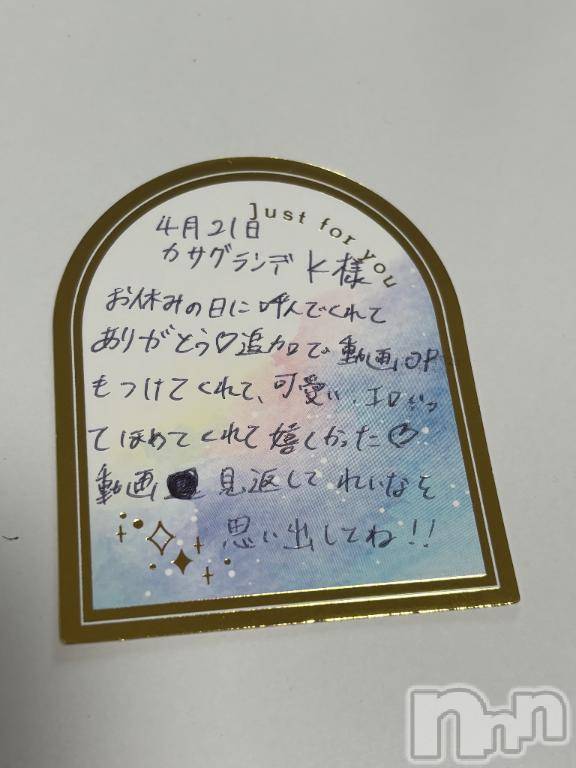 Just for you
4月21日
カサグランデ K様
お休みの日に呼んでくれて
ありがとう♡追加で動画OP
もつけてくれて、可愛い、エロいっ
てほめてくれて嬉しかった♡
動画 見返して れいなを
思い出してね!!
nnn